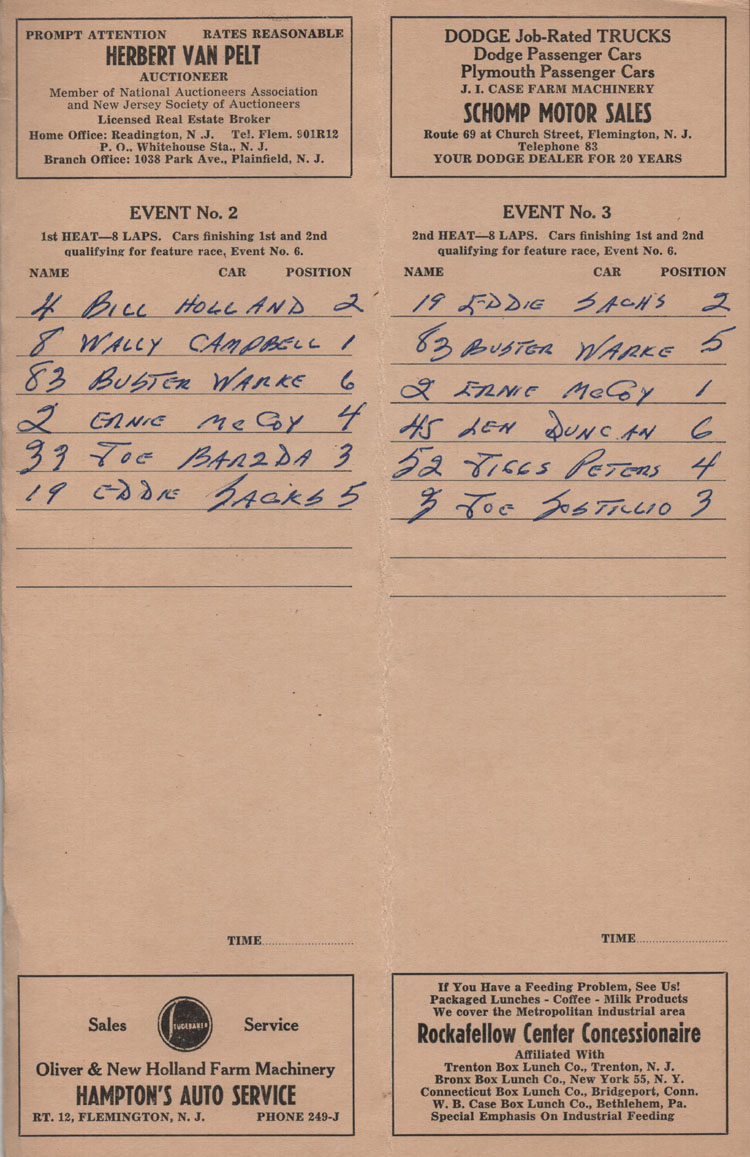 PROMPT ATTENTION RATES REASONABLE
HERBERT VAN PELT
AUCTIONEER
Member of National Auctioneers Association
and New Jersey Society of Auctioneers
Licensed Real Estate Broker
Home Office: Readington, N .J. Tel. Flem. 901R12
P. O., Whitehouse Sta., N. J.
Branch Office: 1038 Park Ave., Plainfield, N. J.
EVENT No. 2
1st HEAT—8 LAPS. Cars finishing 1st and 2nd
qualifying for feature race, Event No. 6.
NAME CAR POSITION
4 BILL HOLLAND 2
8 WALLY CAMPBELL 1
83 BUSTER WARKE 6
2 ERNIE McCOY 4
33 JOE BARZDA 3
19 EDDIE SACKS 5
TIME
Sales STUDEBAKER Service
Oliver & New Holland Farm Machinery
HAMPTON'S AUTO SERVICE
RT. 12, FLEMINGTON, N. J. PHONE 249-J
DODGE Job-Rated TRUCKS
Dodge Passenger Cars
Plymouth Passenger Cars
J. I. CASE FARM MACHINERY
SCHOMP MOTOR SALES
Route 69 at Church Street, Flemington, N. J.
Telephone 83
YOUR DODGE DEALER FOR 20 YEARS
EVENT No. 3
2nd HEAT—8 LAPS. Cars finishing 1st and 2nd
qualifying for feature race, Event No. 6.
NAME CAR POSITION
19 EDDIE SACHS 2
83 BUSTER WARKE 5
2 ERNIE McCOY 1
45 LEN DUNCAN 6
52 JIGGS PETERS 4
3 JOE SOSTILLIO 3
TIME
If You Have a Feeding Problem, See Us!
Packaged Lunches - Coffee - Milk Products
We cover the Metropolitan industrial area
Rockafellow Center Concessionaire
Affiliated With
Trenton Box Lunch Co., Trenton, N. J.
Bronx Box Lunch Co., New York 55, N. Y.
Connecticut Box Lunch Co., Bridgeport, Conn.
W. B. Case Box Lunch Co., Bethlehem, Pa.
Special Emphasis On Industrial Feeding